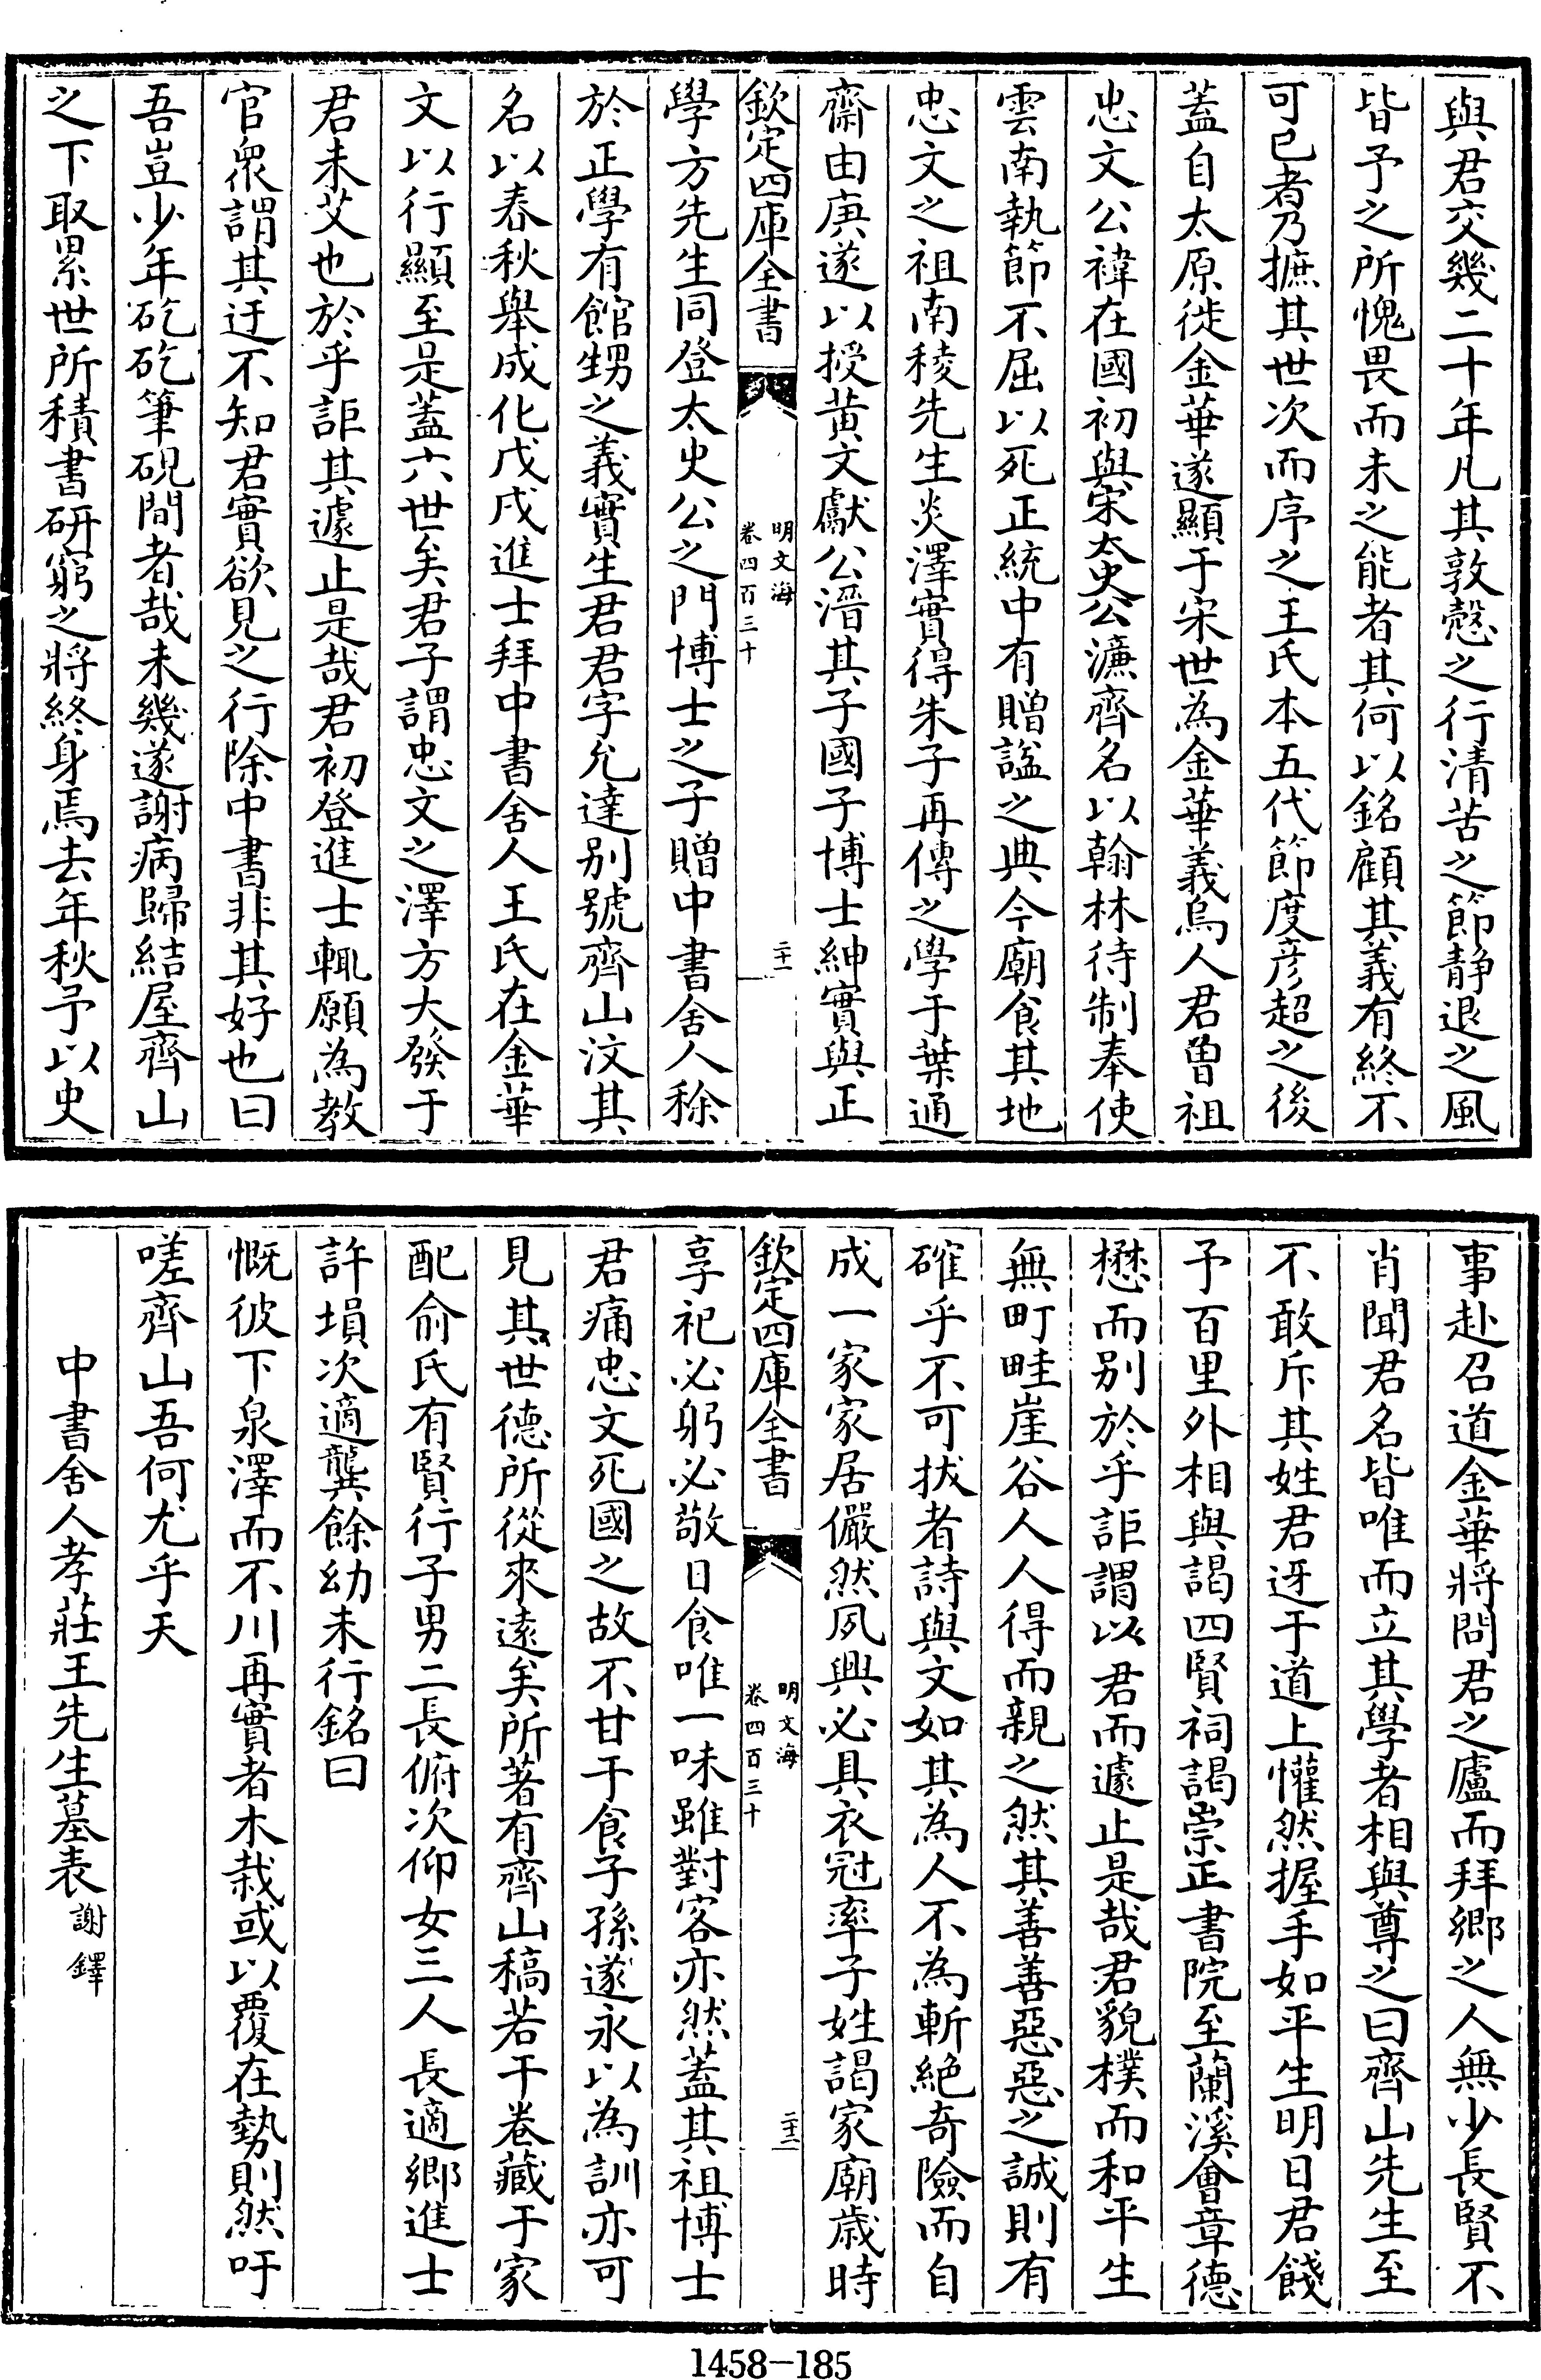 與君交幾二十年凡其敦慤之行清苦之節靜退之風
皆予之所愧畏而未之能者其何以銘顧其義有終不
可已者乃摭其世次而序之王氏本五代節度彦超之後
蓋自太原徙金華遂顯于宋世為金華義烏人君曽祖
忠文公禕在國初與宋太史公濂齊名以翰林待制奉使
雲南執節不屈以死正統中有贈諡之典今廟食其地
忠文之祖南稜先生炎澤實得朱子再傳之學于葉通
齋由庚遂以授黄文獻公溍其子國子博士紳實與正
欽定四庫全書
明文海
卷四百三十
二十一
學方先生同登太史公之門博士之子贈中書舍人稌
於正學有館甥之義實生君君字允達别號齊山汶其
名以春秋舉成化戊戌進士拜中書舍人王氏在金華
文以行顯至是蓋六世矣君子謂忠文之澤方大發于
君未艾也於乎詎其遽止是哉君初登進士輒願為教
官衆謂其迂不知君實欲見之行除中書非其好也曰
吾豈少年矻矻筆硯間者哉未幾遂謝病歸結屋齊山
之下取累世所積書研窮之將終身焉去年秋予以史
事赴召道金華將問君之廬而拜鄉之人無少長賢不
肖聞君名皆唯而立其學者相與尊之曰齊山先生至
不敢斥其姓君迓于道上懽然握手如平生明日君餞
予百里外相與謁四賢祠謁崇正書院至蘭溪會章德
懋而别於乎詎謂以君而遽止是哉君貌樸而和平生
無町畦崖谷人人得而親之然其善善惡惡之誠則有
確乎不可拔者詩與文如其為人不為斬絶奇險而自
成一家家居儼然夙興必具衣冠率子姓謁家廟歲時
欽定四庫全書
明文海
卷四百三十
二十二
享祀必躬必敬日食唯一味雖對客亦然蓋其祖博士
君痛忠文死國之故不甘于食子孫遂永以為訓亦可
見其世德所從來遠矣所著有齊山稿若干卷藏于家
配俞氏有賢行子男二長俯次仰女三人長適鄉進士
許塤次適龔餘幼未行銘曰
慨彼下泉澤而不川再實者木栽或以覆在勢則然吁
嗟齊山吾何尤乎天
中書舍人孝莊王先生墓表謝鐸
1458-185